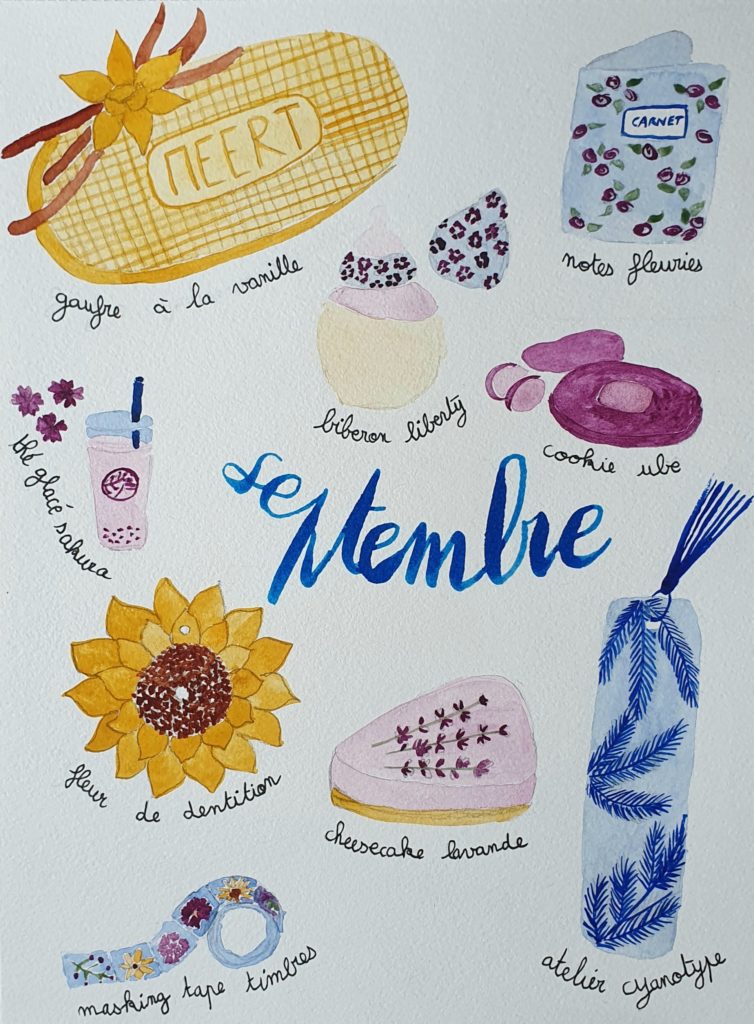 MEERT
gaufre à la vanille
CARNET
notes fleuries
biberon liberty
cookie ube
thé glacé sakura
septembre
fleur de dentition
cheesecake lavande
masking tape timbres
atelier cyanotype